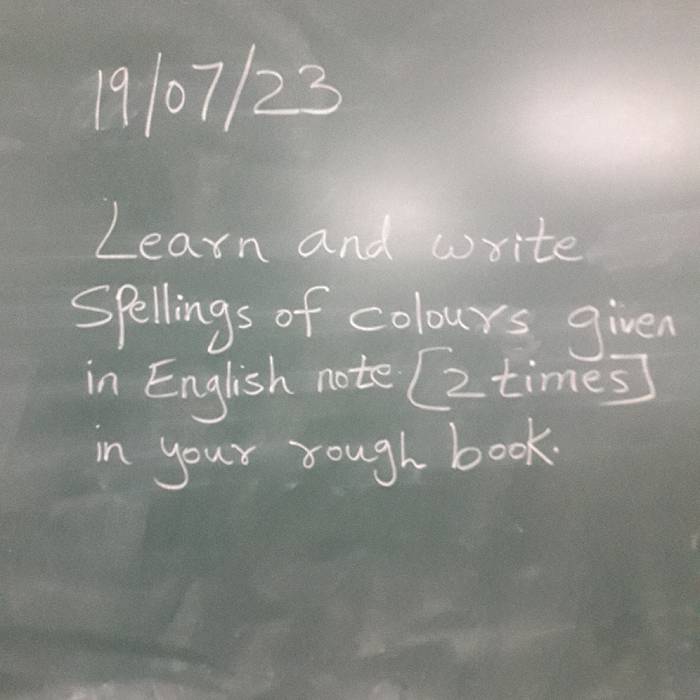 19/07/23
Learn and write
Spellings of colours given
in English note. [2 times]
in your rough book.